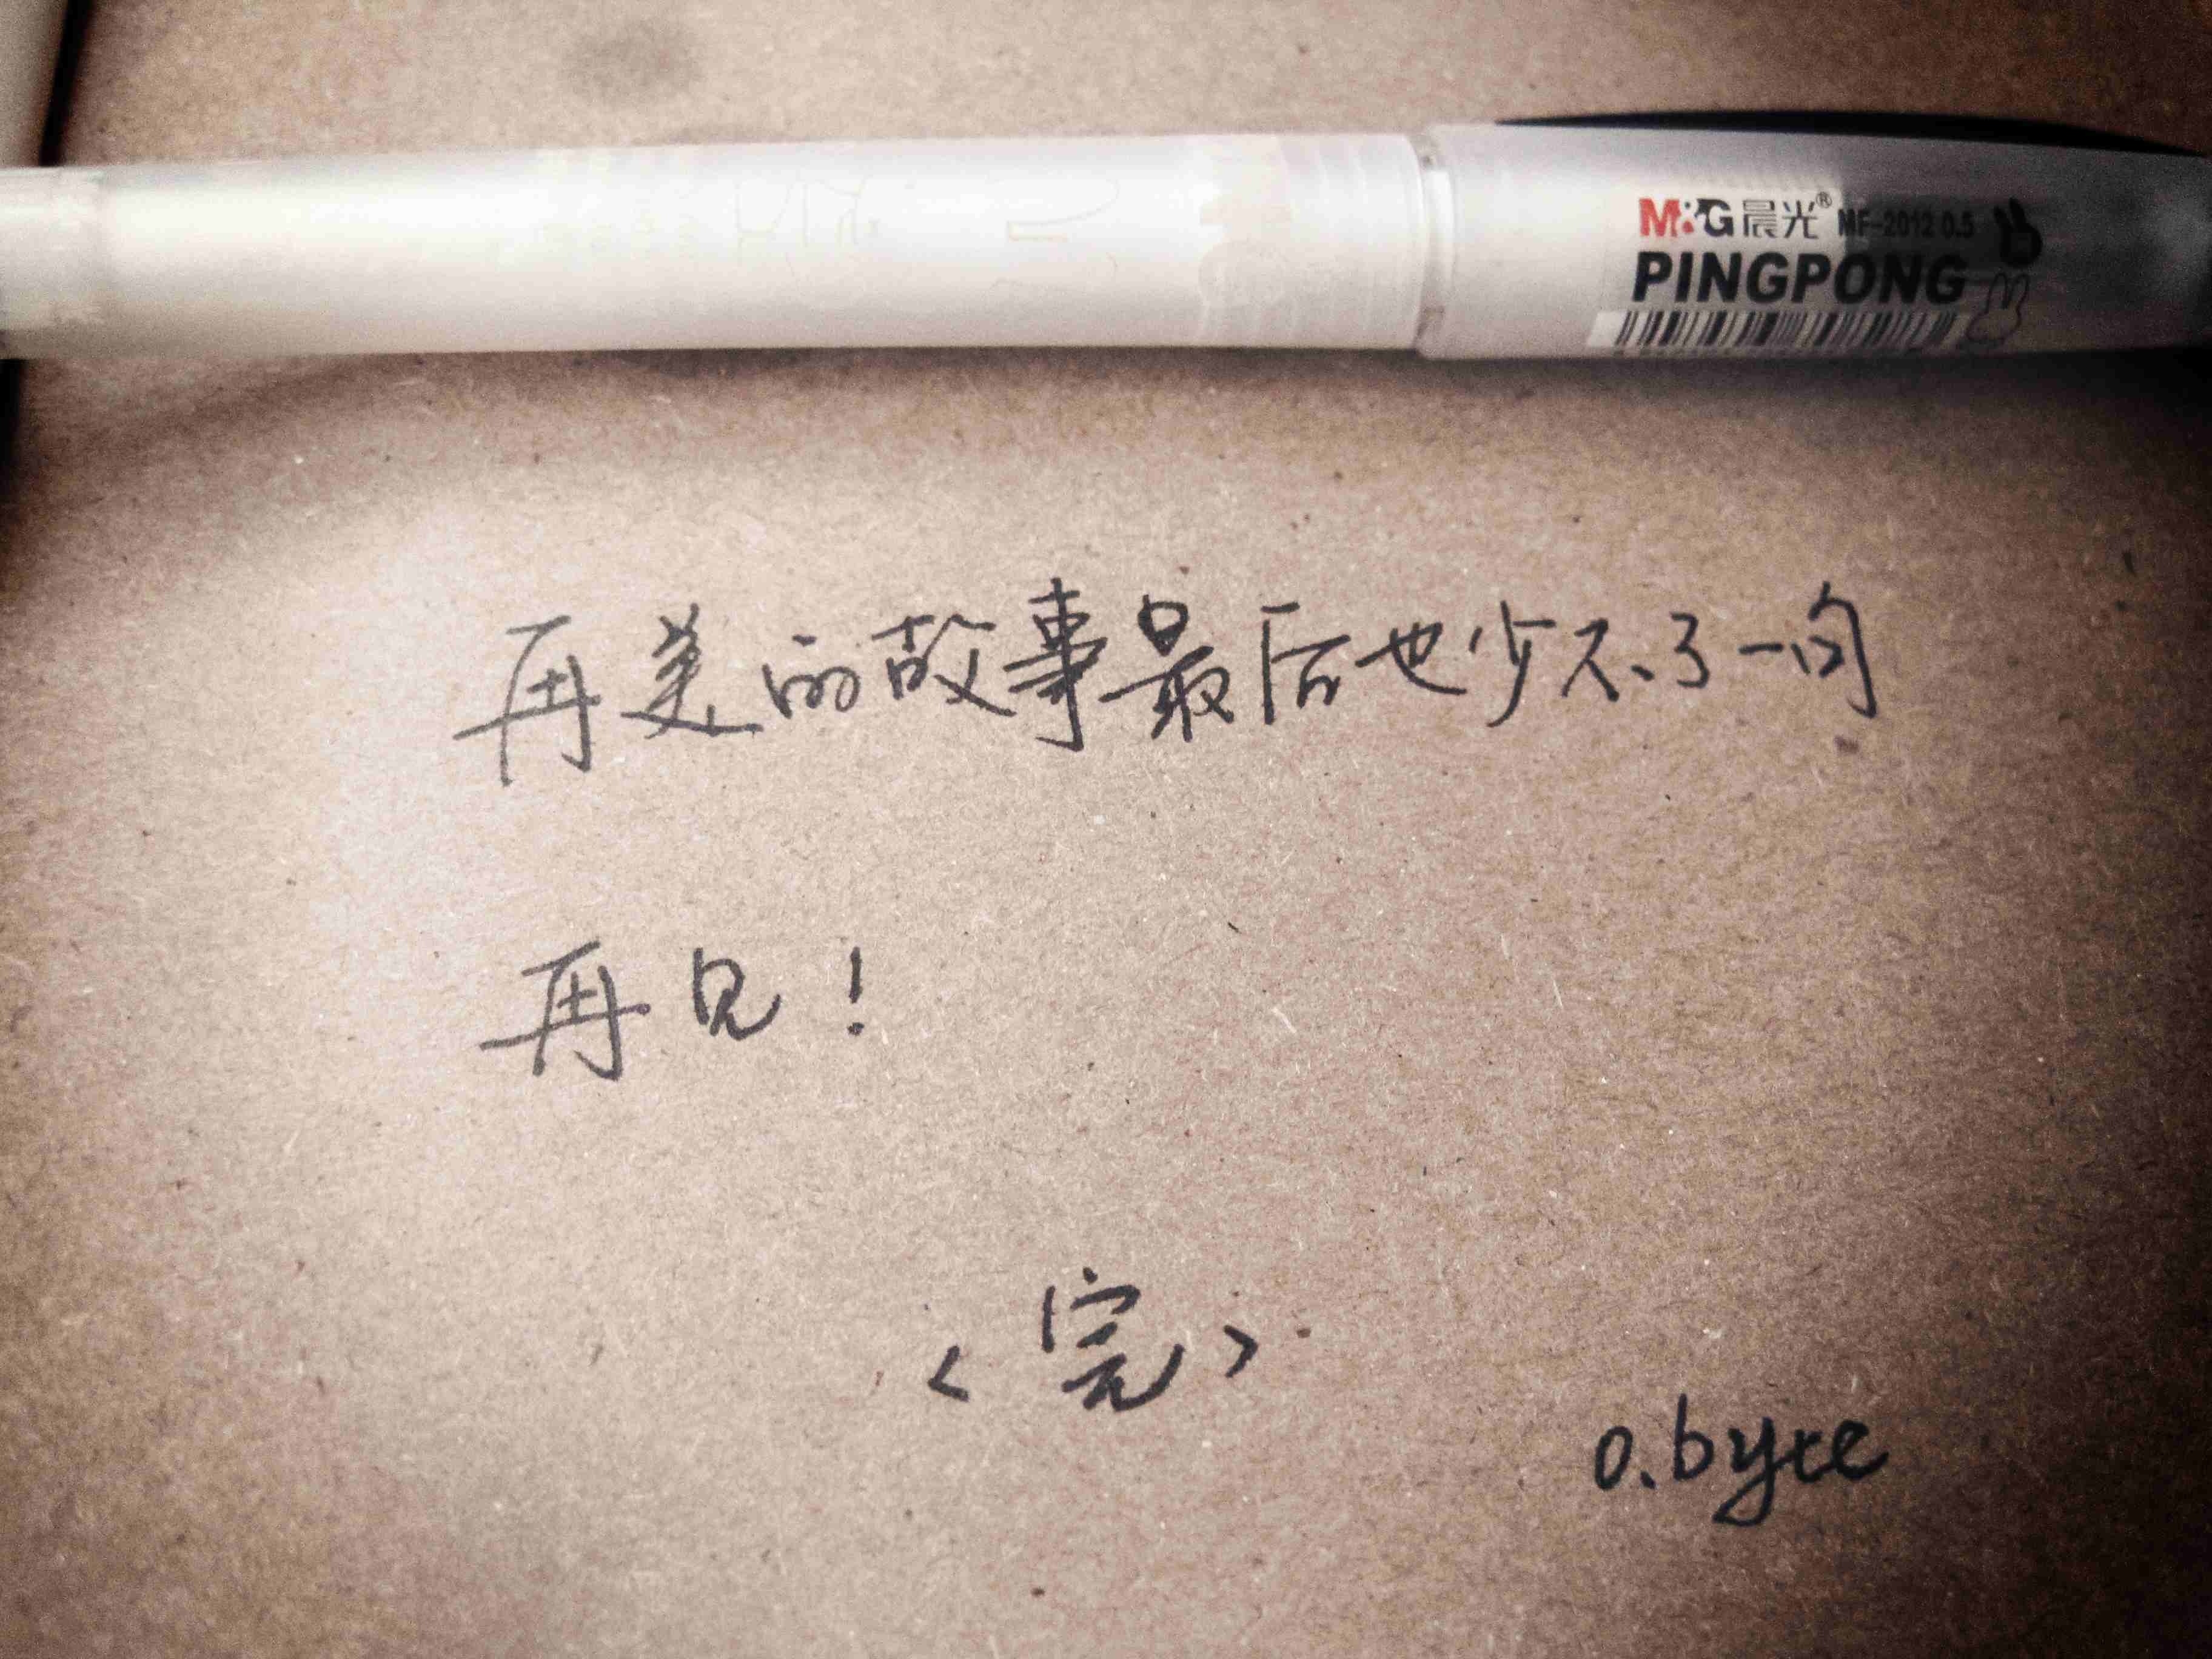 M&G 晨光® MF-2012 0.5
PINGPONG
再美的故事最后也少不了一句
再见！
<完>
o.byte